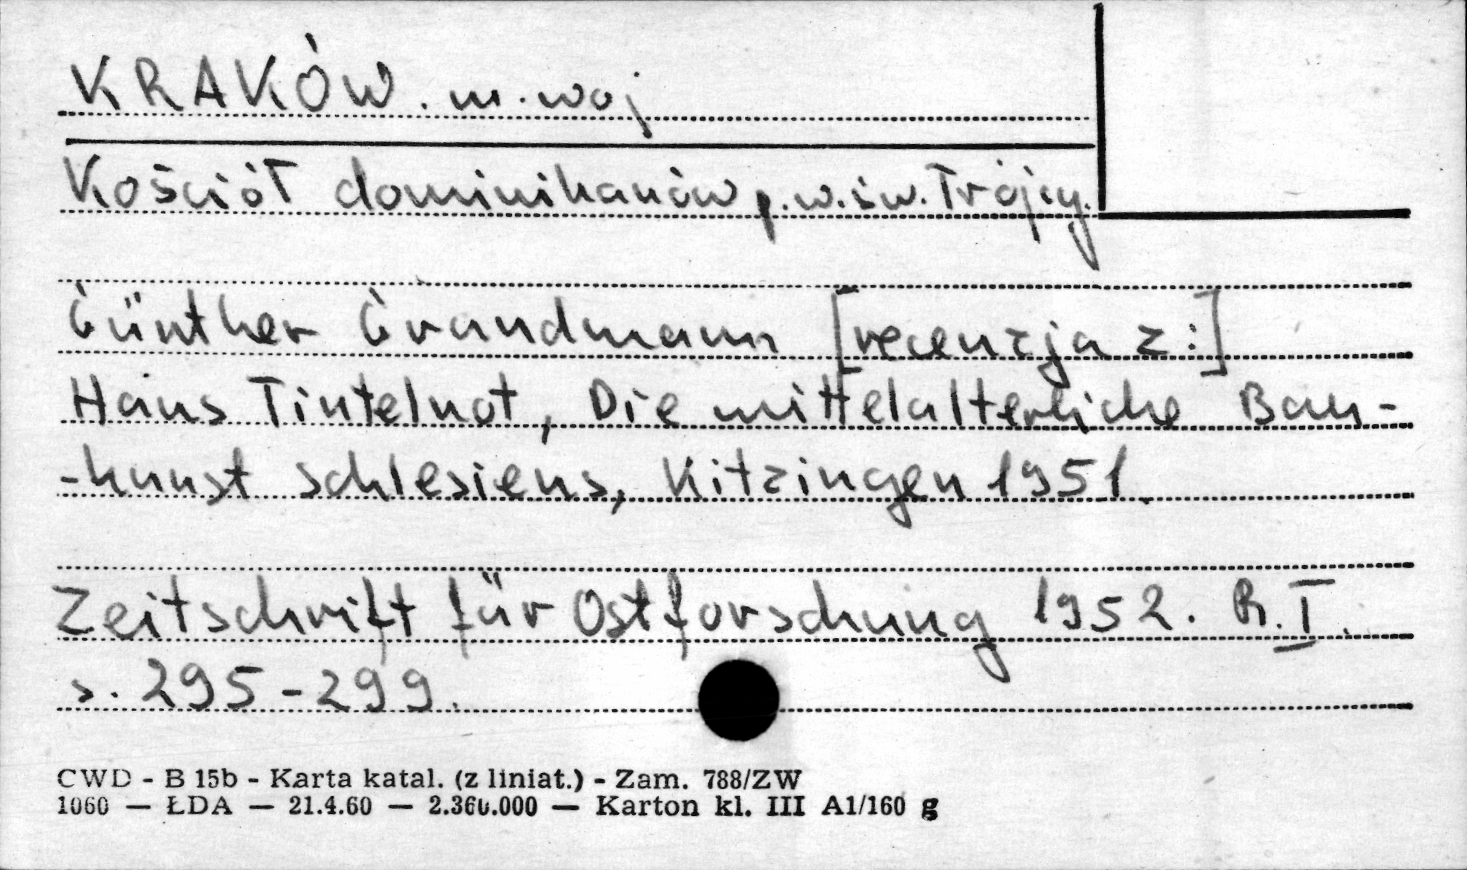 KRAKÓW. m. woj
Kościół dominikanów p.w. św. Trójcy.
Günther Grundmann [recenzja z:]
Hans Tintelnot, Die mittelalterliche Bau-
-kunst Schlesiens, Kitzingen 1951.
Zeitschrift für Ostforschung 1952. R. I.
s. 295-299.
CWD - B 15b - Karta katal. (z liniat.) - Zam. 788/ZW
1060 — ŁDA — 21.4.60 — 2.360.000 — Karton kl. III A1/160 g